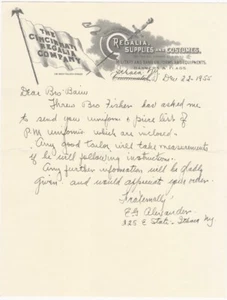 THE CINCINNATI REGALIA COMPANY
REGALIA, SUPPLIES AND COSTUMES,
Ithaca, NY Dec 22-1955
Dear Bro Baum
Threw Bro Fisher has asked me
to send you uniform & price list of
P.M. uniforms which are inclosed.
Any good tailor will take measurements
if he will follow instructions.
Any further information will be gladly
given and would appreciate your order.
Fraternally
E. G. Alexander
E State - Ithaca NY